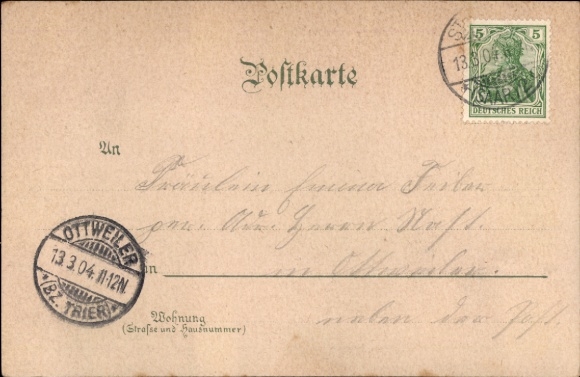 Postkarte
5 5
DEUTSCHES REICH
13.3.04
(SAAR)
An
Fräulein Emma Feiber
Herrn
in Ottweiler.
neben der Post.
OTTWEILER
13.3.04. 11-12N.
*(BZ. TRIER)*
Wohnung
(Strasse und Hausnummer)